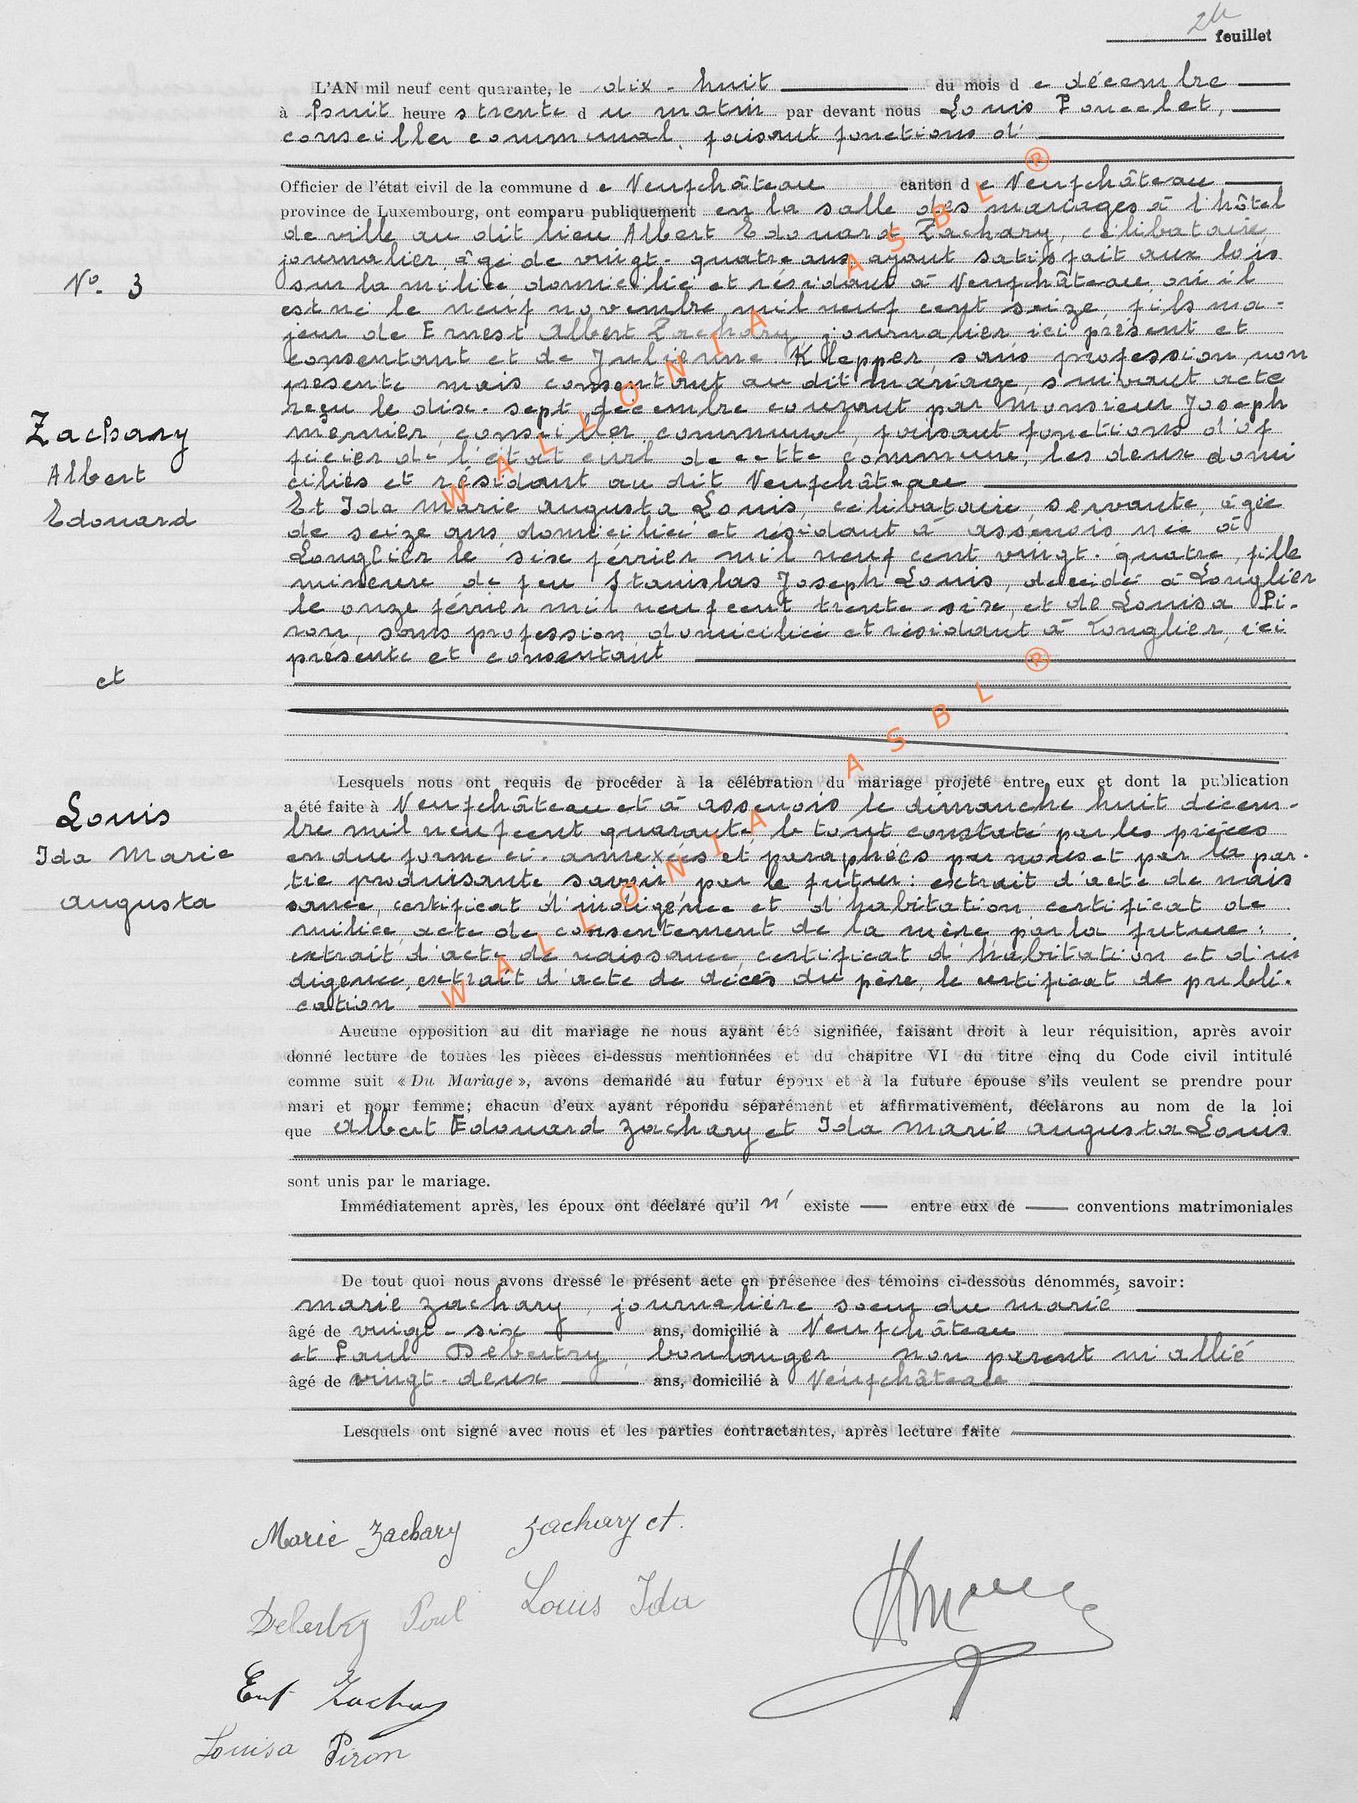 2e feuillet
L'AN mil neuf cent quarante, le dix-huit du mois de décembre
à huit heures trente du matin par devant nous Louis Poncelet,
conseiller communal, faisant fonctions d'
Officier de l'état civil de la commune de Neufchâteau canton de Neufchâteau
province de Luxembourg, ont comparu publiquement en la salle des mariages à l'hôtel
de ville au dit lieu Albert Edouard Zachary, célibataire
journalier, âgé de vingt-quatre ans ayant satisfait aux lois
sur la milice domicilié et résidant à Neufchâteau où il
N° 3
est né le neuf novembre mil neuf cent seize, fils ma-
jeur de Ernest Albert Zachary, journalier, ici présent et
consentant et de Julienne Klepper, sans profession, non
présente mais consentant au dit mariage, suivant acte
reçu le dix-sept décembre courant par Monsieur Joseph
Zachary
Albert
Edouard
Mernier, conseiller communal, faisant fonctions d'of
ficier de l'état civil de cette commune, les deux domi
ciliés et résidant au dit Neufchâteau
Et Ida Marie Augusta Louis, célibataire, servante, âgée
de seize ans domiciliée et résidant à Assenois née à
Longlier le six février mil neuf cent vingt-quatre, fille
mineure de feu Stanislas Joseph Louis, décédé à Longlier
le onze février mil neuf cent trente-six, et de Louisa Pi-
ron, sans profession domiciliée et résidant à Longlier, ici
présente et consentant
et
Lesquels nous ont requis de procéder à la célébration du mariage projeté entre eux et dont la publication
a été faite à Neufchâteau et à Assenois le dimanche huit décem-
Louis
Ida Marie
Augusta
bre mil neuf cent quarante le tout constaté par les pièces
en due forme ci-annexées et paraphées par nous et par la par-
tie produisante savoir par le futur : extrait d'acte de nais
sance, certificat d'indigence et d'habitation certificat de
milice, acte de consentement de la mère, par la future :
extrait d'acte de naissance, certificat d'habitation et d'in
digence, extrait d'acte de décès du père, le certificat de publi-
cation
Aucune opposition au dit mariage ne nous ayant été signifiée, faisant droit à leur réquisition, après avoir
donné lecture de toutes les pièces ci-dessus mentionnées et du chapitre VI du titre cinq du Code civil intitulé
comme suit « Du Mariage », avons demandé au futur époux et à la future épouse s'ils veulent se prendre pour
mari et pour femme; chacun d'eux ayant répondu séparément et affirmativement, déclarons au nom de la loi
que Albert Edouard Zachary et Ida Marie Augusta Louis
sont unis par le mariage.
Immédiatement après, les époux ont déclaré qu'il n' existe — entre eux de — conventions matrimoniales
De tout quoi nous avons dressé le présent acte en présence des témoins ci-dessous dénommés, savoir:
Marie Zachary, journalière soeur du marié
âgé de vingt-six ans, domicilié à Neufchâteau
et Paul Debertry, boulanger, non parent ni allié
âgé de vingt-deux ans, domicilié à Neufchâteau
Lesquels ont signé avec nous et les parties contractantes, après lecture faite
Marie Zachary Zachary et.
Paul Louis Ida
Zachary
Louisa Piron
WALLONIA ASBL ®
WALLONIA ASBL ®